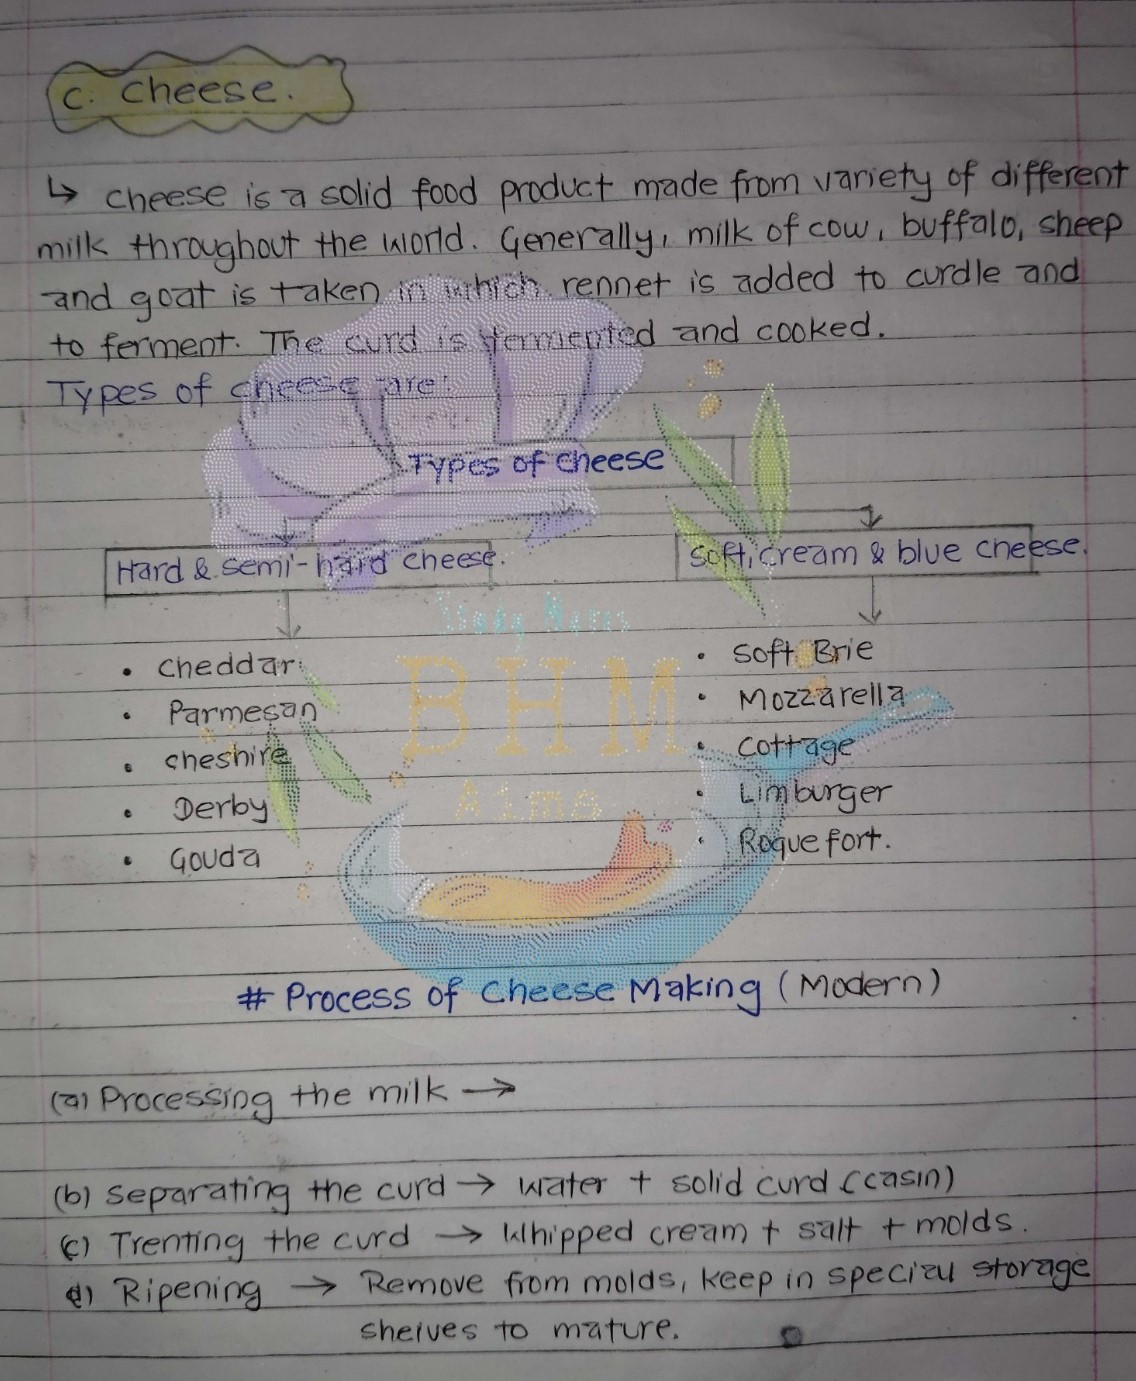 C. Cheese.
↳ Cheese is a solid food product made from variety of different
milk throughout the world. Generally, milk of cow, buffalo, sheep
and goat is taken in which rennet is added to curdle and
to ferment. The curd is fermented and cooked.
Types of cheese are:
Types of Cheese
Hard & semi-hard cheese.
Soft, cream & blue cheese.
• Cheddar
• Parmesan
• Cheshire
• Derby
• Gouda
• Soft Brie
• Mozzarella
• Cottage
• Limburger
• Roquefort.
Study Notes
BHM
Aims
# Process of Cheese Making (Modern)
(a) Processing the milk →
(b) Separating the curd → water + solid curd (casin)
(c) Trenting the curd → Whipped cream + salt + molds.
(d) Ripening → Remove from molds, keep in special storage
shelves to mature.